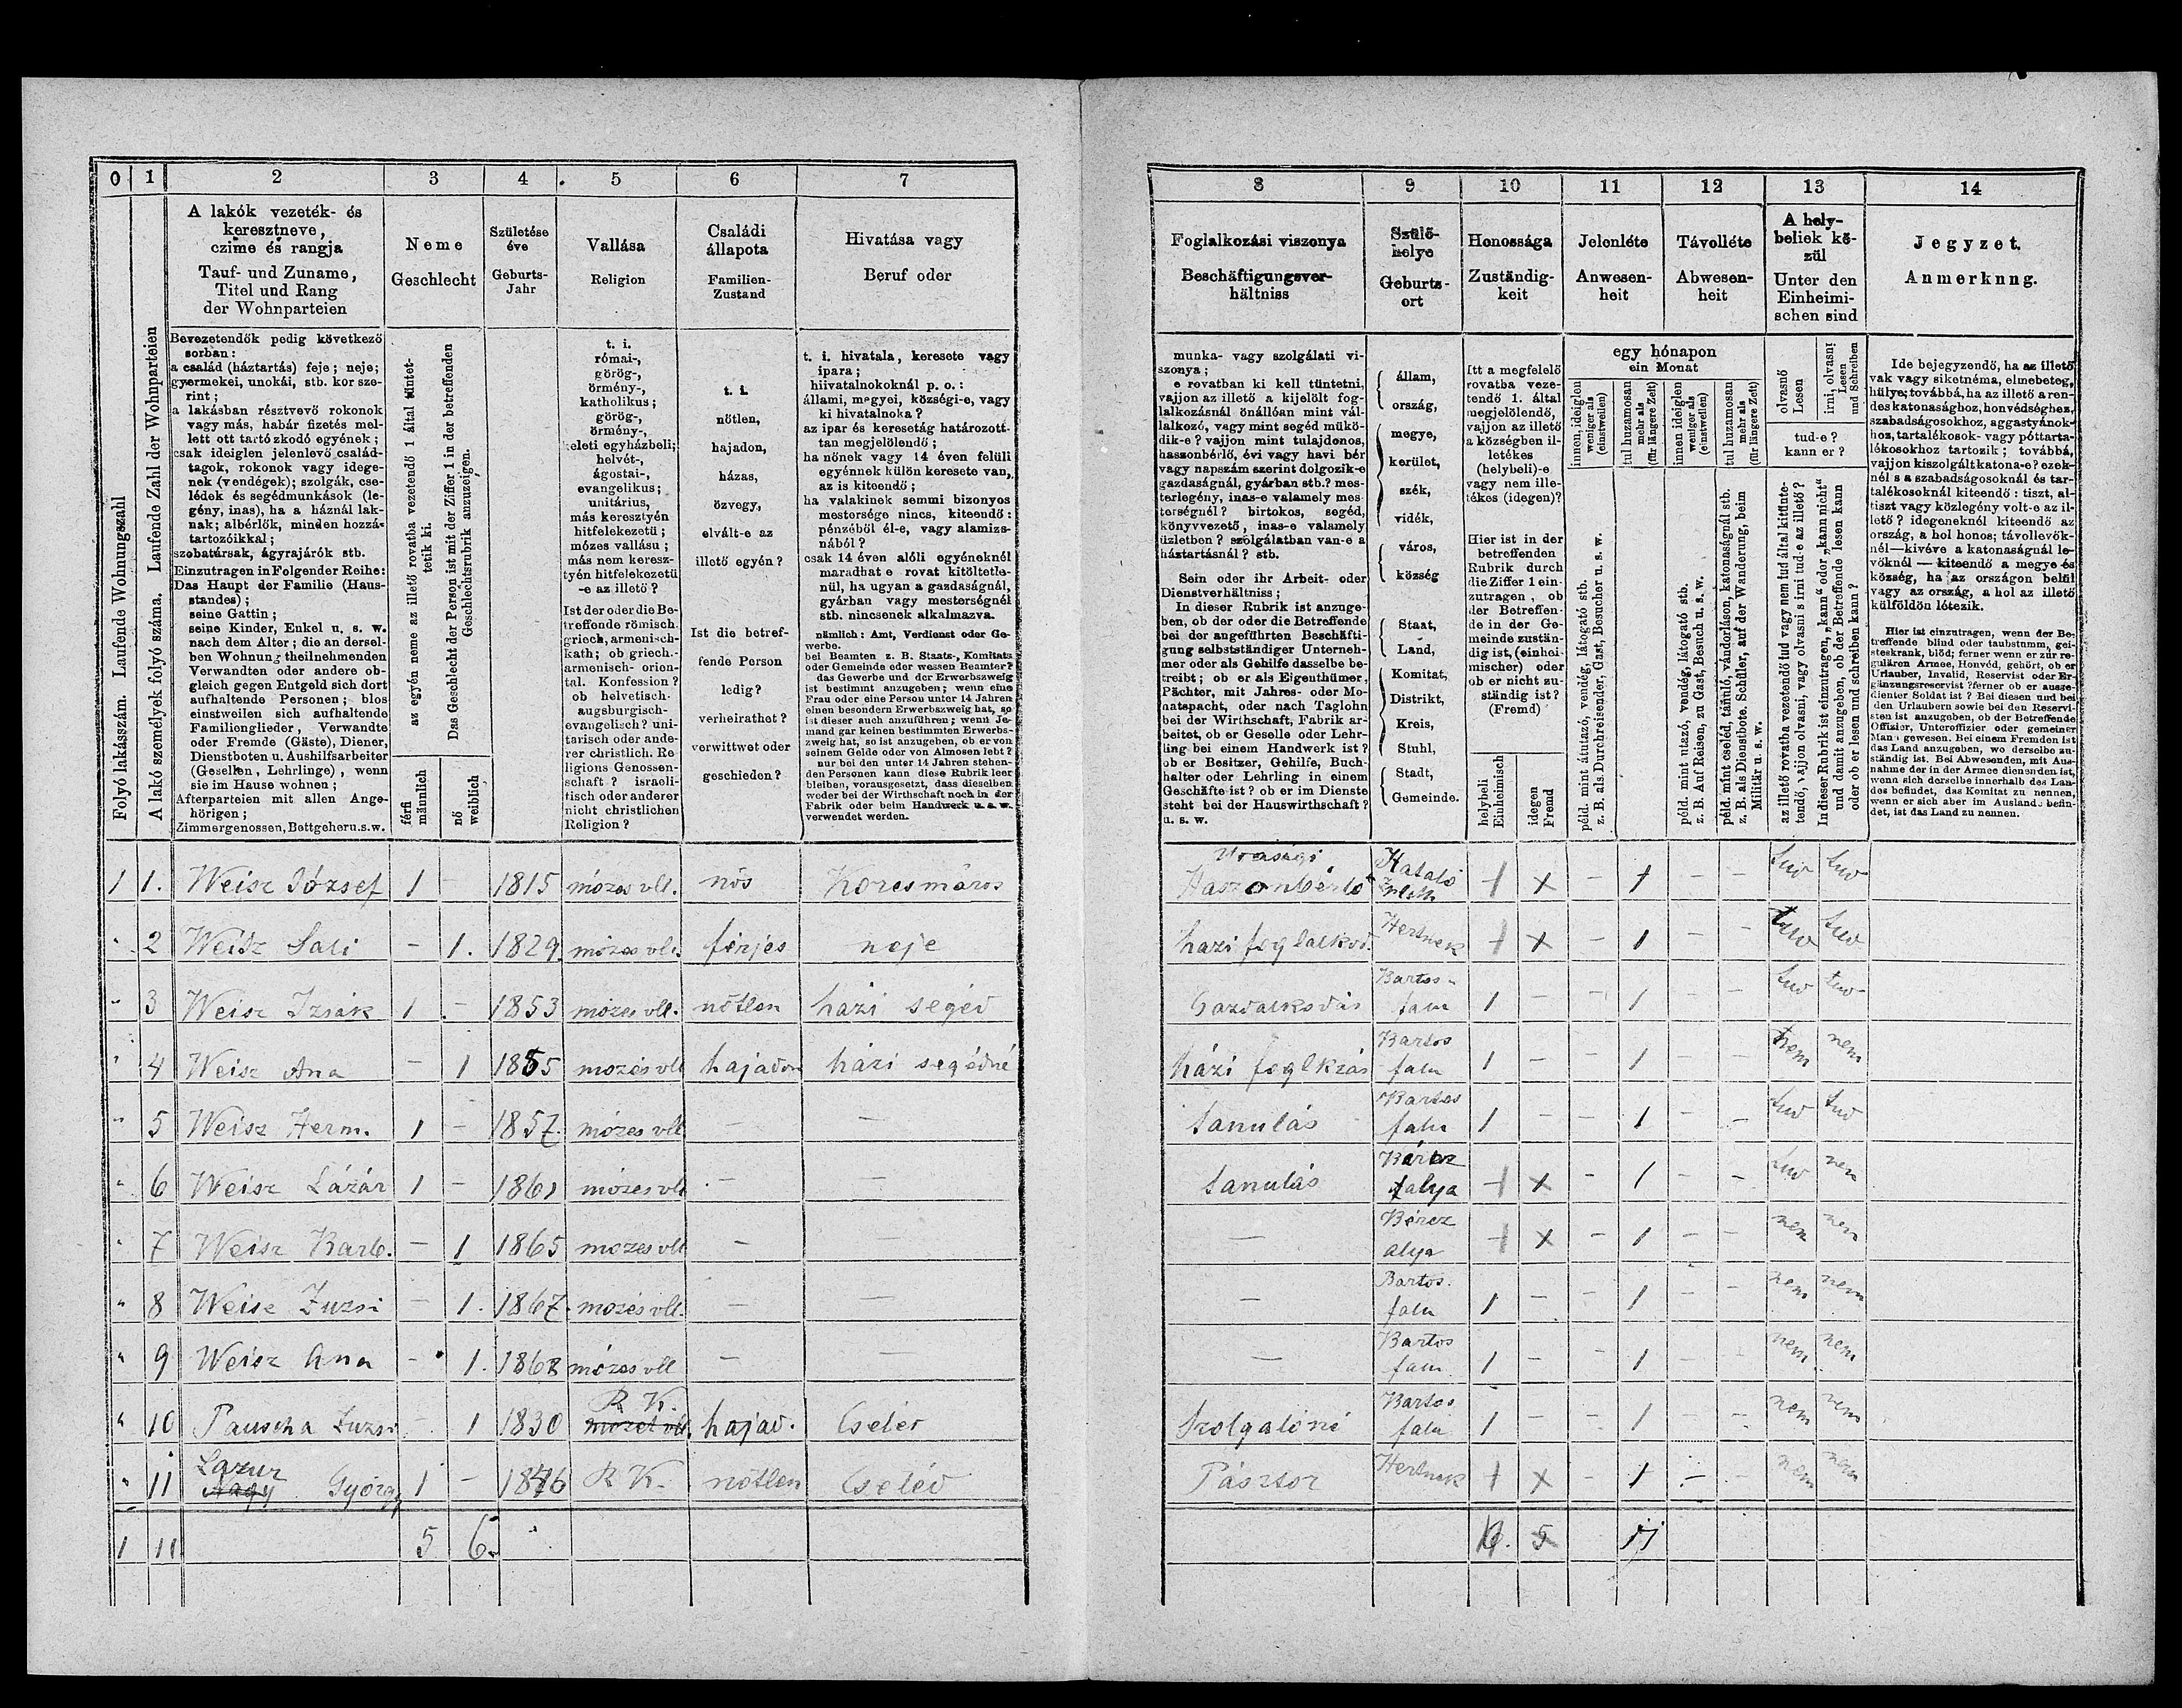 0 1 2 3 4 5 6 7
A lakók vezeték- és
keresztneve,
czime és rangja
Tauf- und Zuname,
Titel und Rang
der Wohnparteien
Neme
Geschlecht
Születése
éve
Geburts-
Jahr
Vallása
Religion
Családi
állapota
Familien-
Zustand
Hivatása vagy
Beruf oder
Folyó lakásszám. Laufende Wohnungszahl
A lakó személyek folyó száma. Laufende Zahl der Wohnparteien
Bevezetendők pedig következő
sorban:
a család (háztartás) feje; neje;
gyermekei, unokái, stb. kor sze-
rint;
a lakásban résztvevő rokonok
vagy más, habár fizetés mel-
lett ott tartózkodó egyének;
csak ideiglen jelenlevő család-
tagok, rokonok vagy idege-
nek (vendégek); szolgák, cse-
lédek és segédmunkások (le-
gény, inas), ha a háznál lak-
nak; albérlők, minden hozzá-
tartozóikkal;
szobatársak, ágyrajárók stb.
Einzutragen in Folgender Reihe:
Das Haupt der Familie (Haus-
standes);
seine Gattin;
seine Kinder, Enkel u. s. w.
nach dem Alter; die an dersel-
ben Wohnung theilnehmenden
Verwandten oder andere ob-
gleich gegen Entgeld sich dort
aufhaltende Personen; blos
einstweilen sich aufhaltende
Familienglieder, Verwandte
oder Fremde (Gäste), Diener,
Dienstboten u. Aushilfsarbeiter
(Gesellen, Lehrlinge), wenn
sie im Hause wohnen;
Afterparteien mit allen Ange-
hörigen;
Zimmergenossen, Bettgeher u.s.w.
az egyén neme az illető rovatba vezetendő 1 által tüntet-
tetik ki.
Das Geschlecht der Person ist mit der Ziffer 1 in der betreffenden
Geschlechtsrubrik anzuzeigen.
férfi
männlich
nő
weiblich
t. i.
római-,
görög-,
örmény-,
katholikus;
görög-,
örmény-,
keleti egyházbeli;
helvét-,
ágostai-,
evangelikus;
unitárius,
más keresztyén
hitfelekezetü;
mózes vallásu;
más nem keresz-
tyén hitfelekezetü
-e az illető?
Ist der oder die Be-
treffende römisch-
griech, armenisch-
kath; ob griech.-
armenisch- orien-
tal. Konfession?
ob helvetisch-
augsburgisch-
evangelisch? uni-
tarisch oder ande-
rer christlich. Re-
ligions Genossen-
schaft? israeli-
tisch oder anderer
nicht christlichen
Religion?
t. i.
nőtlen,
hajadon,
házas,
özvegy,
elvált-e az
illető egyén?
Ist die betref-
fende Person
ledig?
verheirathet?
verwittwet oder
geschieden?
t. i. hivatala, keresete vagy
ipara;
hiivatalnokoknál p. o.:
állami, megyei, községi-e, vagy
ki hivatalnoka?
az ipar és keresetág határozot-
tan megjelölendő;
ha nőnek vagy 14 éven felüli
egyénnek külön keresete van,
az is kiteendő;
ha valakinek semmi bizonyos
mestersége nincs, kiteendő:
pénzéből él-e, vagy alamizs-
nából?
csak 14 éven alóli egyéneknél
maradhat e rovat kitöltetle-
nül, ha ugyan a gazdaságnál,
gyárban vagy mesterségnél
stb. nincsenek alkalmazva.
nämlich: Amt, Verdienst oder Ge-
werbe.
bei Beamten z. B. Staats-, Komitats
oder Gemeinde oder wessen Beamter?
das Gewerbe und der Erwerbszweig
ist bestimmt anzugeben; wenn eine
Frau oder eine Person unter 14 Jahren
einen besondern Erwerbszweig hat, so
ist dieser auch anzuführen; wenn Je-
mand gar keinen bestimmten Erwerbs-
zweig hat, so ist anzugeben, ob er von
seinem Gelde oder von Almosen lebt?
nur bei den unter 14 Jahren stehen-
den Personen kann diese Rubrik leer
bleiben, vorausgesetzt, dass dieselben
weder bei der Wirthschaft noch in der
Fabrik oder beim Handwerk u. s. w.
verwendet werden.
1 1. Weisz József 1 – 1815 mózes vll. nős Korcsmáros
" 2 Weisz Sali – 1. 1829. mózes vll. férjes neje
" 3 Weisz Izsák 1 – 1853 mózes vll. nőtlen házi segéd
" 4 Weisz Ana – 1 1855 mozés vll hajadon házi segédné
" 5 Weisz Herm. 1 – 1857. mózes vll – –
" 6 Weisz Lázár 1 – 1861 mózes vll – –
" 7 Weisz Barb. – 1 1865 mozes vll – –
" 8 Weisz Zuzsi – 1. 1867. mozés vll. – –
" 9 Weisz Ana – 1. 1868 mózes vll – –
" 10 Pauscha Zuzsi – 1 1830 R K. mozes vll. hajad. Cseléd
" 11 Lazur Nagy György 1 – 1846 R K. nőtlen Cseléd
1 11 5 6.
8 9 10 11 12 13 14
Foglalkozási viszonya
Beschäftigungsver-
hältniss
Szülő-
helye
Geburts-
ort
Honossága
Zuständig-
keit
Jelenléte
Anwesen-
heit
Távolléte
Abwesen-
heit
A hely-
beliek kö-
zül
Unter den
Einheimi-
schen sind
Jegyzet.
Anmerknng.
munka- vagy szolgálati vi-
szonya;
e rovatban ki kell tüntetni,
vajjon az illető a kijelölt fog-
lalkozásnál önállóan mint vál-
lalkozó, vagy mint segéd mükö-
dik-e? vajjon mint tulajdonos,
haszonbérlő, évi vagy havi bér
vagy napszám szerint dolgozik-e
gazdaságnál, gyárban stb.? mes-
terlegény, inas-e valamely mes-
terségnél? birtokos, segéd,
könyvvezető, inas-e valamely
üzletben? szolgálatban van-e a
háztartásnál? stb.
Sein oder ihr Arbeit- oder
Dienstverhältniss;
In dieser Rubrik ist anzuge-
ben, ob der oder die Betreffende
bei der angeführten Beschäfti-
gung selbstständiger Unterneh-
mer oder als Gehilfe dasselbe be-
treibt; ob er als Eigenthümer,
Pächter, mit Jahres- oder Mo-
natspacht, oder nach Taglohn
bei der Wirthschaft, Fabrik ar-
beitet, ob er Geselle oder Lehr-
ling bei einem Handwerk ist?
ob er Besitzer, Gehilfe, Buch-
halter oder Lehrling in einem
Geschäfte ist? ob er im Dienste
steht bei der Hauswirthschaft?
u. s. w.
állam,
ország,
megye,
kerület,
szék,
vidék,
város,
község
Staat,
Land,
Komitat,
Distrikt,
Kreis,
Stuhl,
Stadt,
Gemeinde.
Itt a megfelelő
rovatba veze-
tendő 1. által
megjelölendő,
vajjon az illető
a községben il-
letékes
(helybeli)-e
vagy nem ille-
tékes (idegen)?
Hier ist in der
betreffenden
Rubrik durch
die Ziffer 1 ein-
zutragen, ob
der Betreffen-
de in der Ge-
meinde zustän-
dig ist, (einhei-
mischer) oder
ob er nicht zu-
ständig ist?
(Fremd)
helybeli
Einheimisch
idegen
Fremd
egy hónapon
ein Monat
innen, ideiglen
weniger als
(einstweilen)
tul huzamosan
mehr als
(für längere Zeit)
innen ideiglen
weniger als
(einstweilen)
tul huzamosan
mehr als
(für längere Zeit)
péld. mint átutazó, vendég, látogató stb.
z. B. als Durchreisender, Gast, Besucher u. s. w.
péld. mint utazó, vendég, látogató stb.
z. B. Auf Reisen, zu Gast, Besuch u. s. w.
péld. mint cseléd, tanuló, vándorláson, katonaságnál stb.
z. B. als Dienstbote. Schüller, auf der Wanderung, beim
Militär u. s. w.
olvasnő
Lesen
irni, olvasni
Lesen
und Schreiben
tud-e?
kann er?
az illető rovatba vezetendő tud vagy nem tud által kitünte-
tendő, vajjon olvasni, vagy olvasni s irni tud-e az illető?
In dieser Rubrik ist einzutragen, „kann" oder „kann nicht"
und damit anzugeben, ob der Betreffende lesen kann
oder ob er lesen und schreiben kann?
Ide bejegyzendő, ha az illető
vak vagy siketnéma, elmebeteg,
hülye; továbbá, ha az illető a ren-
des katonasághoz, honvédséghez,
szabadságosokhoz, aggastyánok-
hoz, tartalékosok- vagy póttarta-
lékosokhoz tartozik; továbbá,
vajjon kiszolgált katona-e? ezek-
nél s a szabadságosoknál és tar-
talékosoknál kiteendő: tiszt, al-
tiszt vagy közlegény volt-e az il-
lető? idegeneknél kiteendő az
ország, a hol honos; távollevők-
nél—kivéve a katonaságnál le-
vőknél — kiteendő a megye és
község, ha az országon belül
vagy az ország, a hol az illető
külföldön létezik.
Hier ist einzutragen, wenn der Be-
treffende blind oder taubstumm, gei-
steskrank, blöd; ferner wenn er zur re-
gulären Armee, Honvéd, gehört, ob er
Urlauber, Invalid, Reservist oder Er-
gänzungsreservist? ferner ob er ausge-
dienter Soldat ist? Bei diesen und bei
den Urlaubern sowie bei den Reservi-
sten ist anzugeben, ob der Betreffende
Offizier, Unteroffizier oder gemeiner
Man gewesen. Bei einem Fremden ist
das Land anzugeben, wo derselbe zu-
ständig ist. Bei Abwesenden, mit Aus-
nahme der in der Armee dienenden ist,
wenn sich derselbe innerhalb des Lan-
des befindet, das Komitat zu nennen,
wenn er sich aber im Auslande befin-
det, ist das Land zu nennen.
Urasági Haszonbérlő 1 x – 1 – – tud tud
házi foglalkod. Hertnek 1 x – 1 – – tud tud
Gazdalkodás Bartos-falu 1 – – 1 – – tud tud
házi foglkzás Bartos falu 1 – – 1 – – nem nem
tanulás Bartos falu 1 – – 1 – – tud tud
tanulás alya 1 x – 1 – – tud nem
– Bércz alya 1 x – 1 – – nem nem
– Bartos. falu 1 – – 1 – – nem nem
– Bartos falu 1 – – 1 – – nem nem
Szolgalóné Bartos falu 1 – – 1 – – nem nem
Pásztor Hertnek 1 x – 1 – – nem nem
6. 5 11